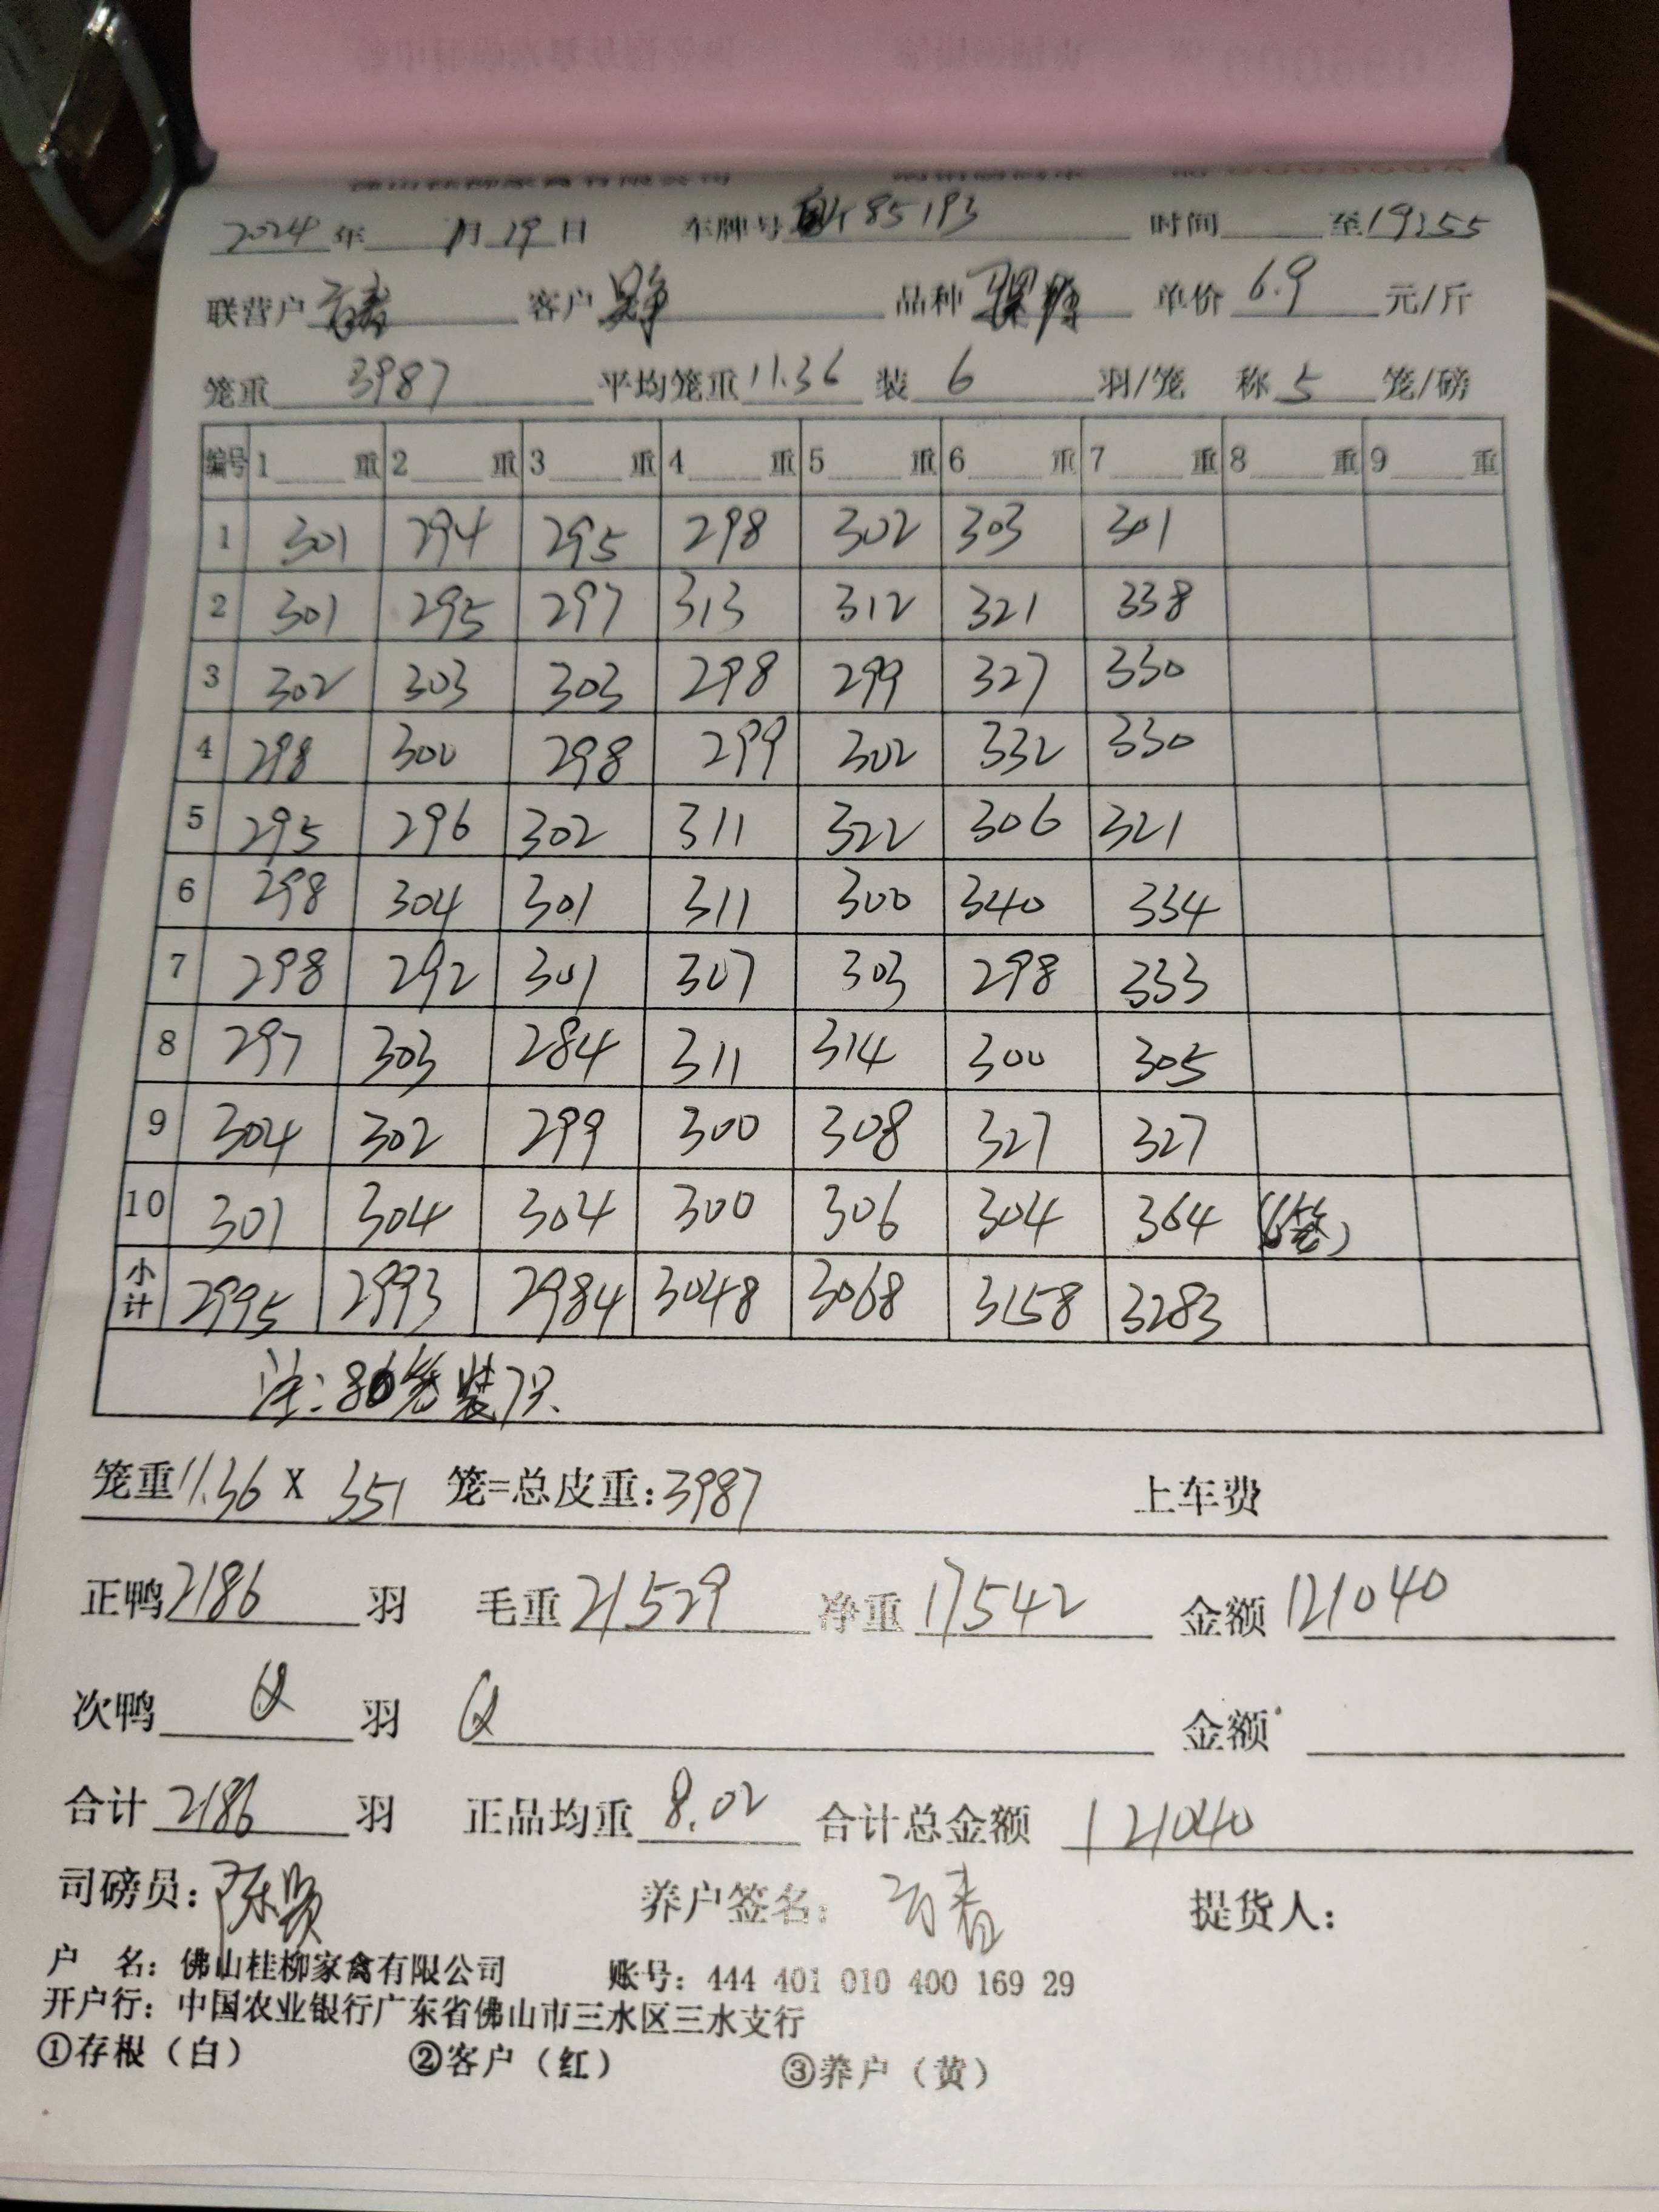 2024年 1月19日 车牌号 85193 时间 至19:55
联营户 客户 品种 单价6.9元/斤
笼重3987 平均笼重11.36 装6羽/笼 称5笼/磅
编号 1 重 2 重 3 重 4 重 5 重 6 重 7 重 8 重 9 重
1 301 294 295 298 302 303 301
2 301 295 297 313 312 321 338
3 302 303 303 298 299 327 330
4 298 300 298 299 302 332 330
5 295 296 302 311 322 306 321
6 298 304 301 311 300 340 334
7 298 292 301 307 303 298 333
8 297 303 284 311 314 300 305
9 304 302 299 300 308 327 327
10 301 304 304 300 306 304 364 (6笼)
小计 2995 2993 2984 3048 3068 3158 3283
注:80笼装7只
笼重11.36 X 351 笼=总皮重:3987 上车费
正鸭2186羽 毛重21529 净重17542 金额121040
次鸭 羽 金额
合计2186羽 正品均重8.02 合计总金额121040
司磅员:陈贤 养户签名: 提货人:
户 名:佛山桂柳家禽有限公司 账号:444 401 010 400 169 29
开户行:中国农业银行广东省佛山市三水区三水支行
①存根(白) ②客户(红) ③养户(黄)